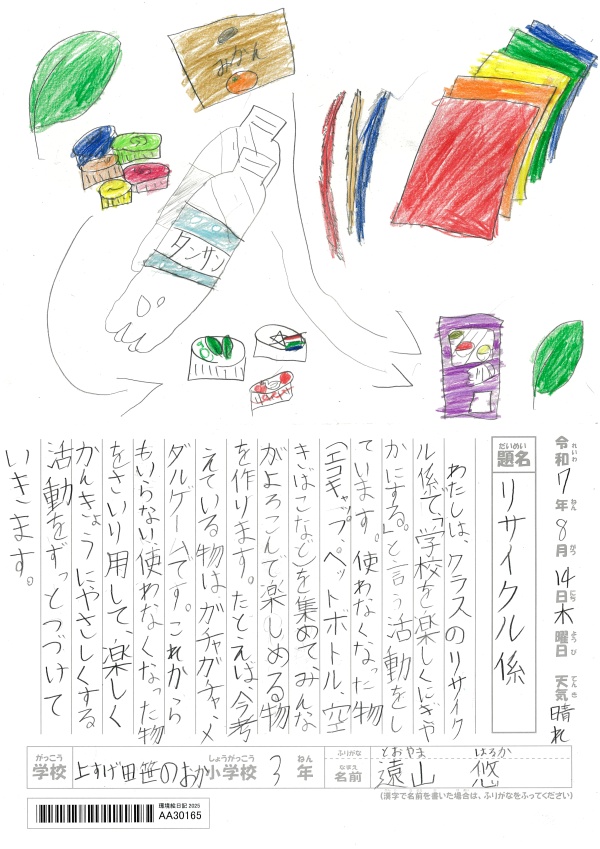 みかん
タンサン
令和7年8月14日木曜日 天気 晴れ
れいわ ねん がつ にち ようび てんき
だいめい
題名
リサイクル係
わたしは、クラスのリサイク
ル係で「学校を楽しくにぎや
かにする。」と言う活動をし
ています。使わなくなった物
(エコキャップ、ペットボトル、空
きばこなど)を集めてみんな
がよろこんで楽しめる物
を作ります。たとえば、今考
えている物はガチャガチャ、メ
ダルゲームです。これからら
もいらない使わなくなった物
をさいり用して、楽しく
かんきょうにやさしくする
活動をずっとつづけて
いきます。
がっこう しょうがっこう ねん ふりがな とおやま はるか
学校 上すげ田笹のおか小学校 3年 なまえ 名前 遠山 悠
(漢字で名前を書いた場合は、ふりがなをふってください)
環境絵日記 2025
AA30165